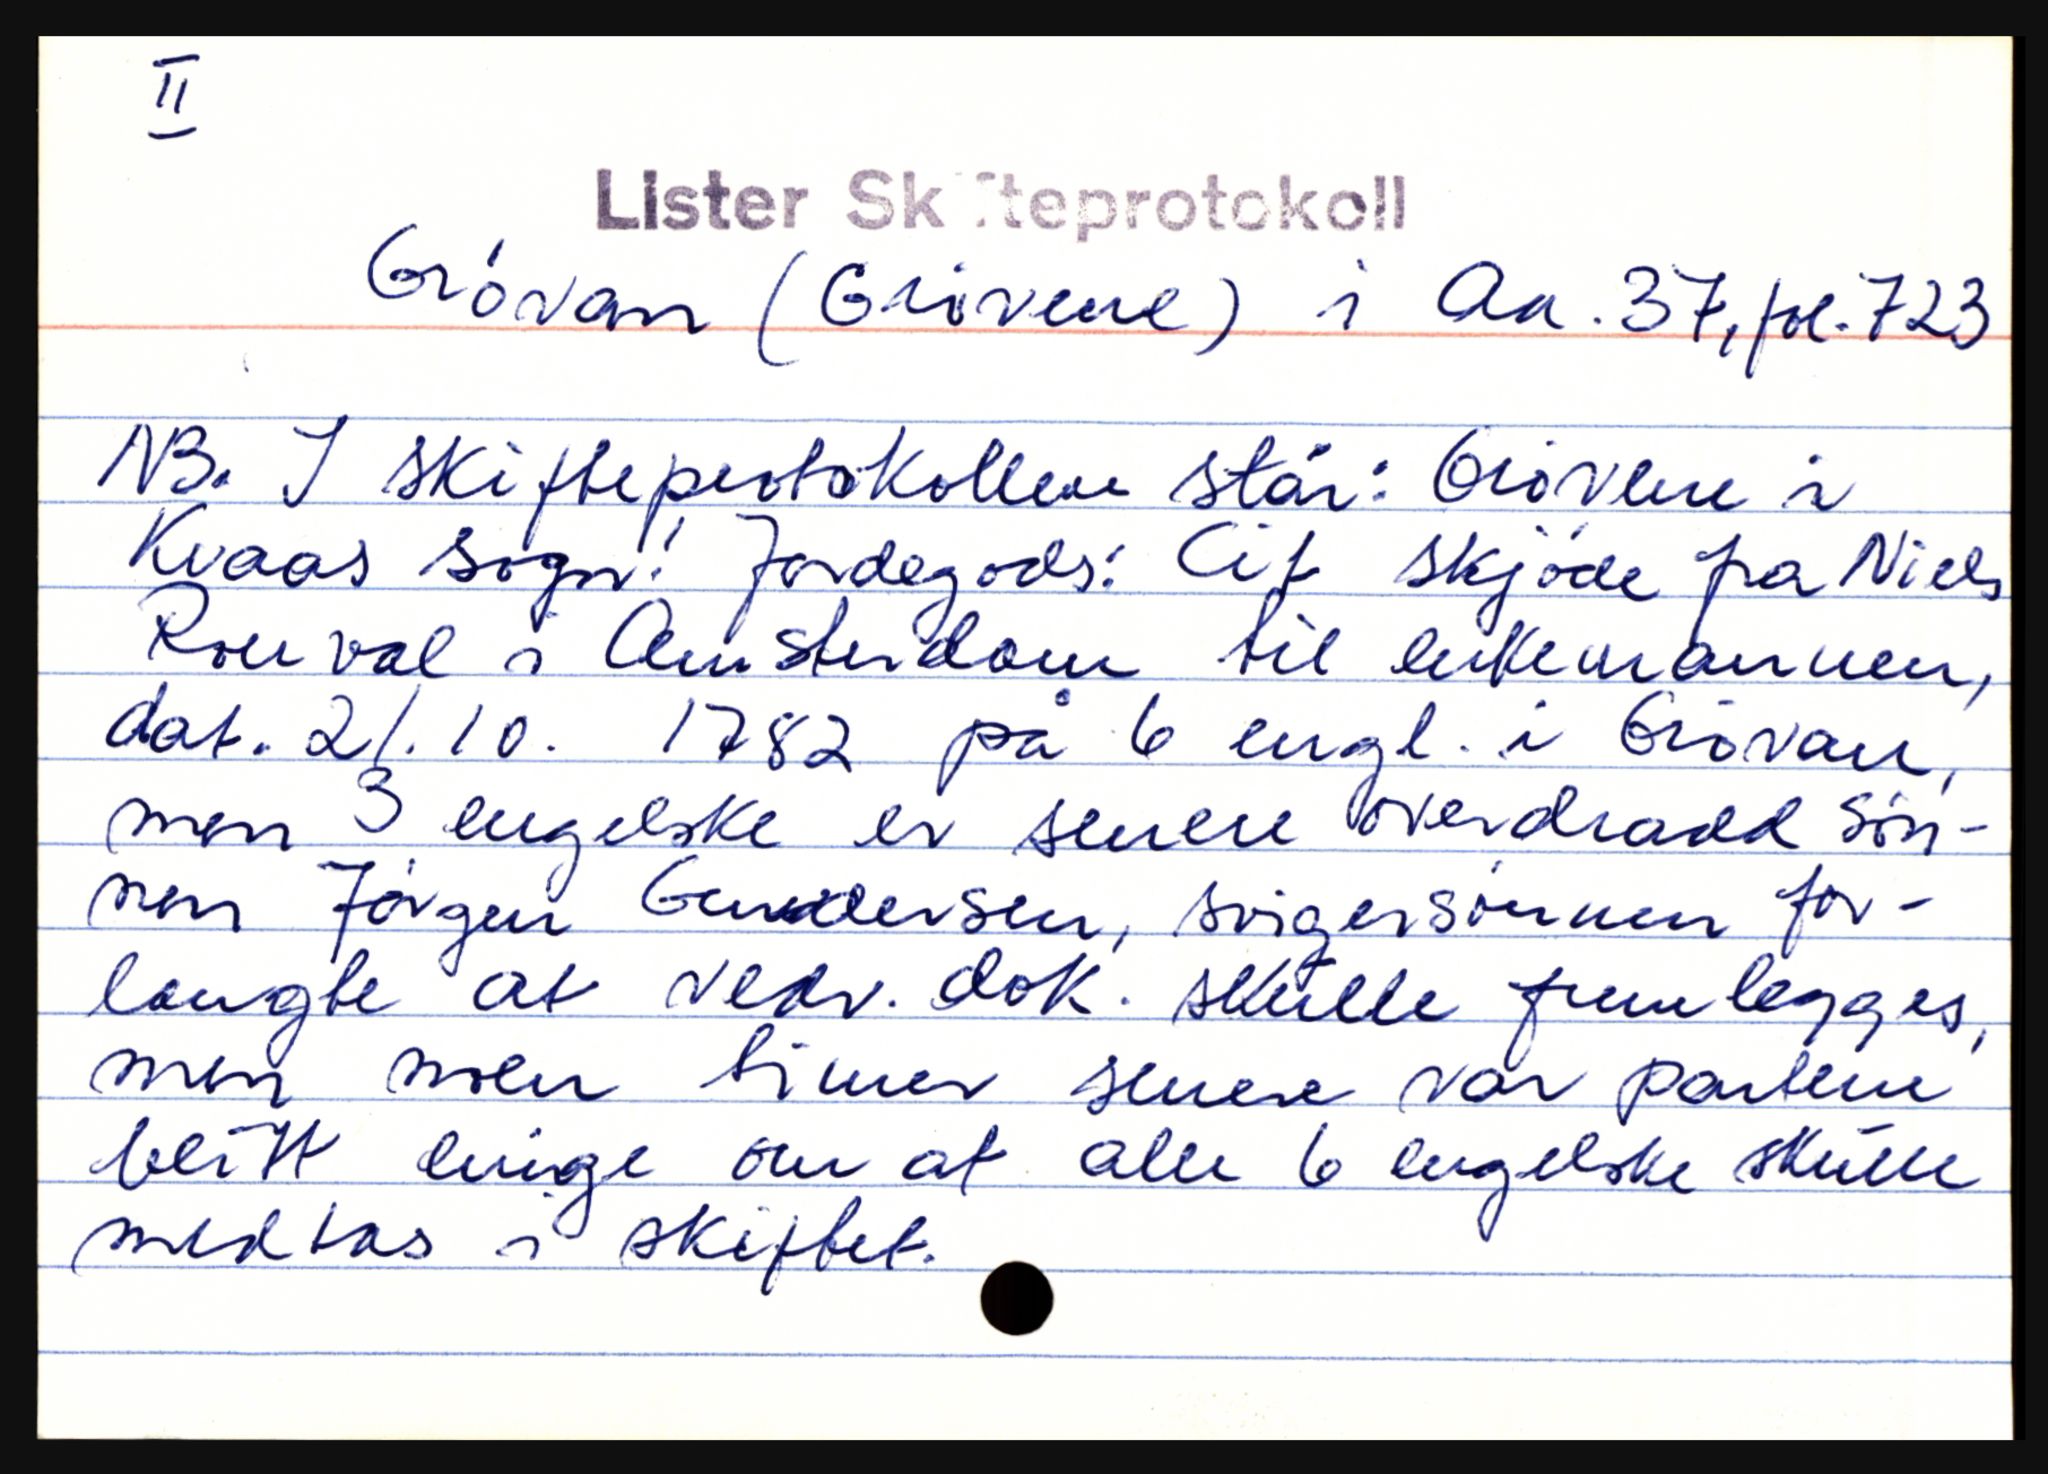 II
Lister Skifteprotokoll
Gróvan (Gróvene) i Aa. 37, fol. 723
NB. I skifteprotokollen står: Gróvene i
Kvaas sogn! Jordegods: Cit skjóde fra Niels
i Amsterdam til enkemannen,
dat. 21.10. 1782 på 6 engl. i Gróvan,
men 3 engelske er senere overdradd són-
nen Jórgen Gundersen, svigersónnen for-
langte at vedv. dok. skulle fremlegges,
men noen timer senere var partene
blitt enige om at alle 6 engelske skulle
medtas i skiftet.